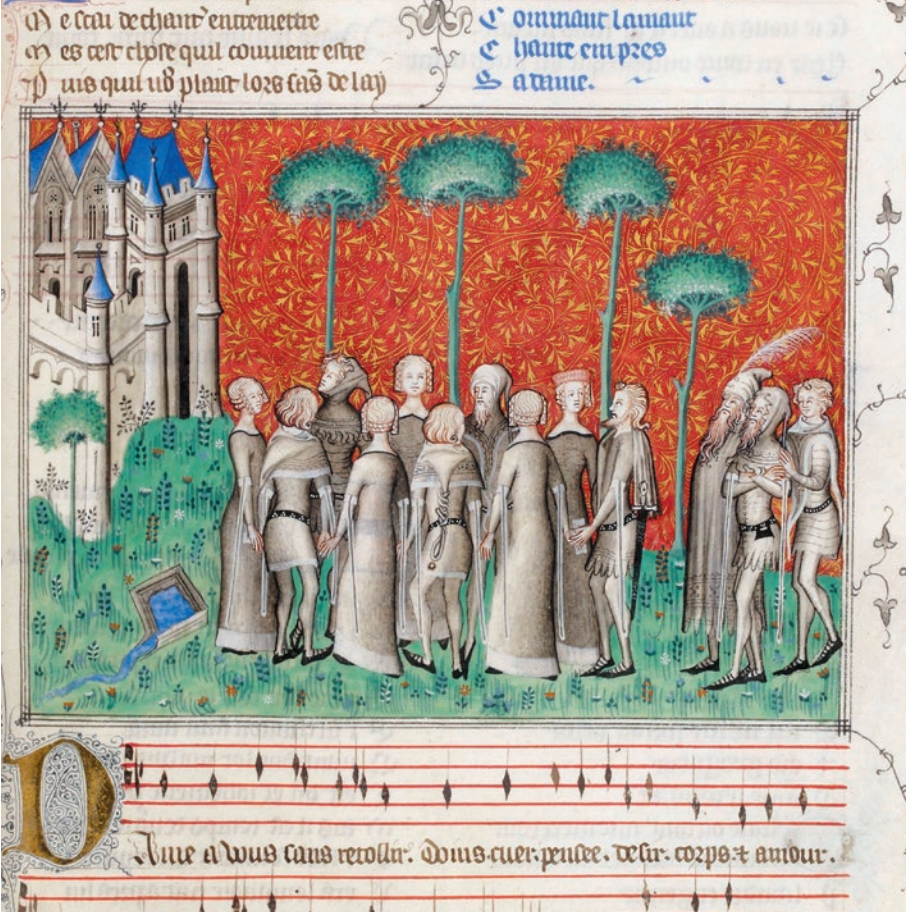 M e scai de chant entremettre
M es cest chose quil couuient estre
P uis quil uo9 plaist lors sās delay
C ommant lamant
C hante empres
S a dame.
Dame a vous sans retollir. Doins cuer. pensee. desir. corps. ⁊ amour.